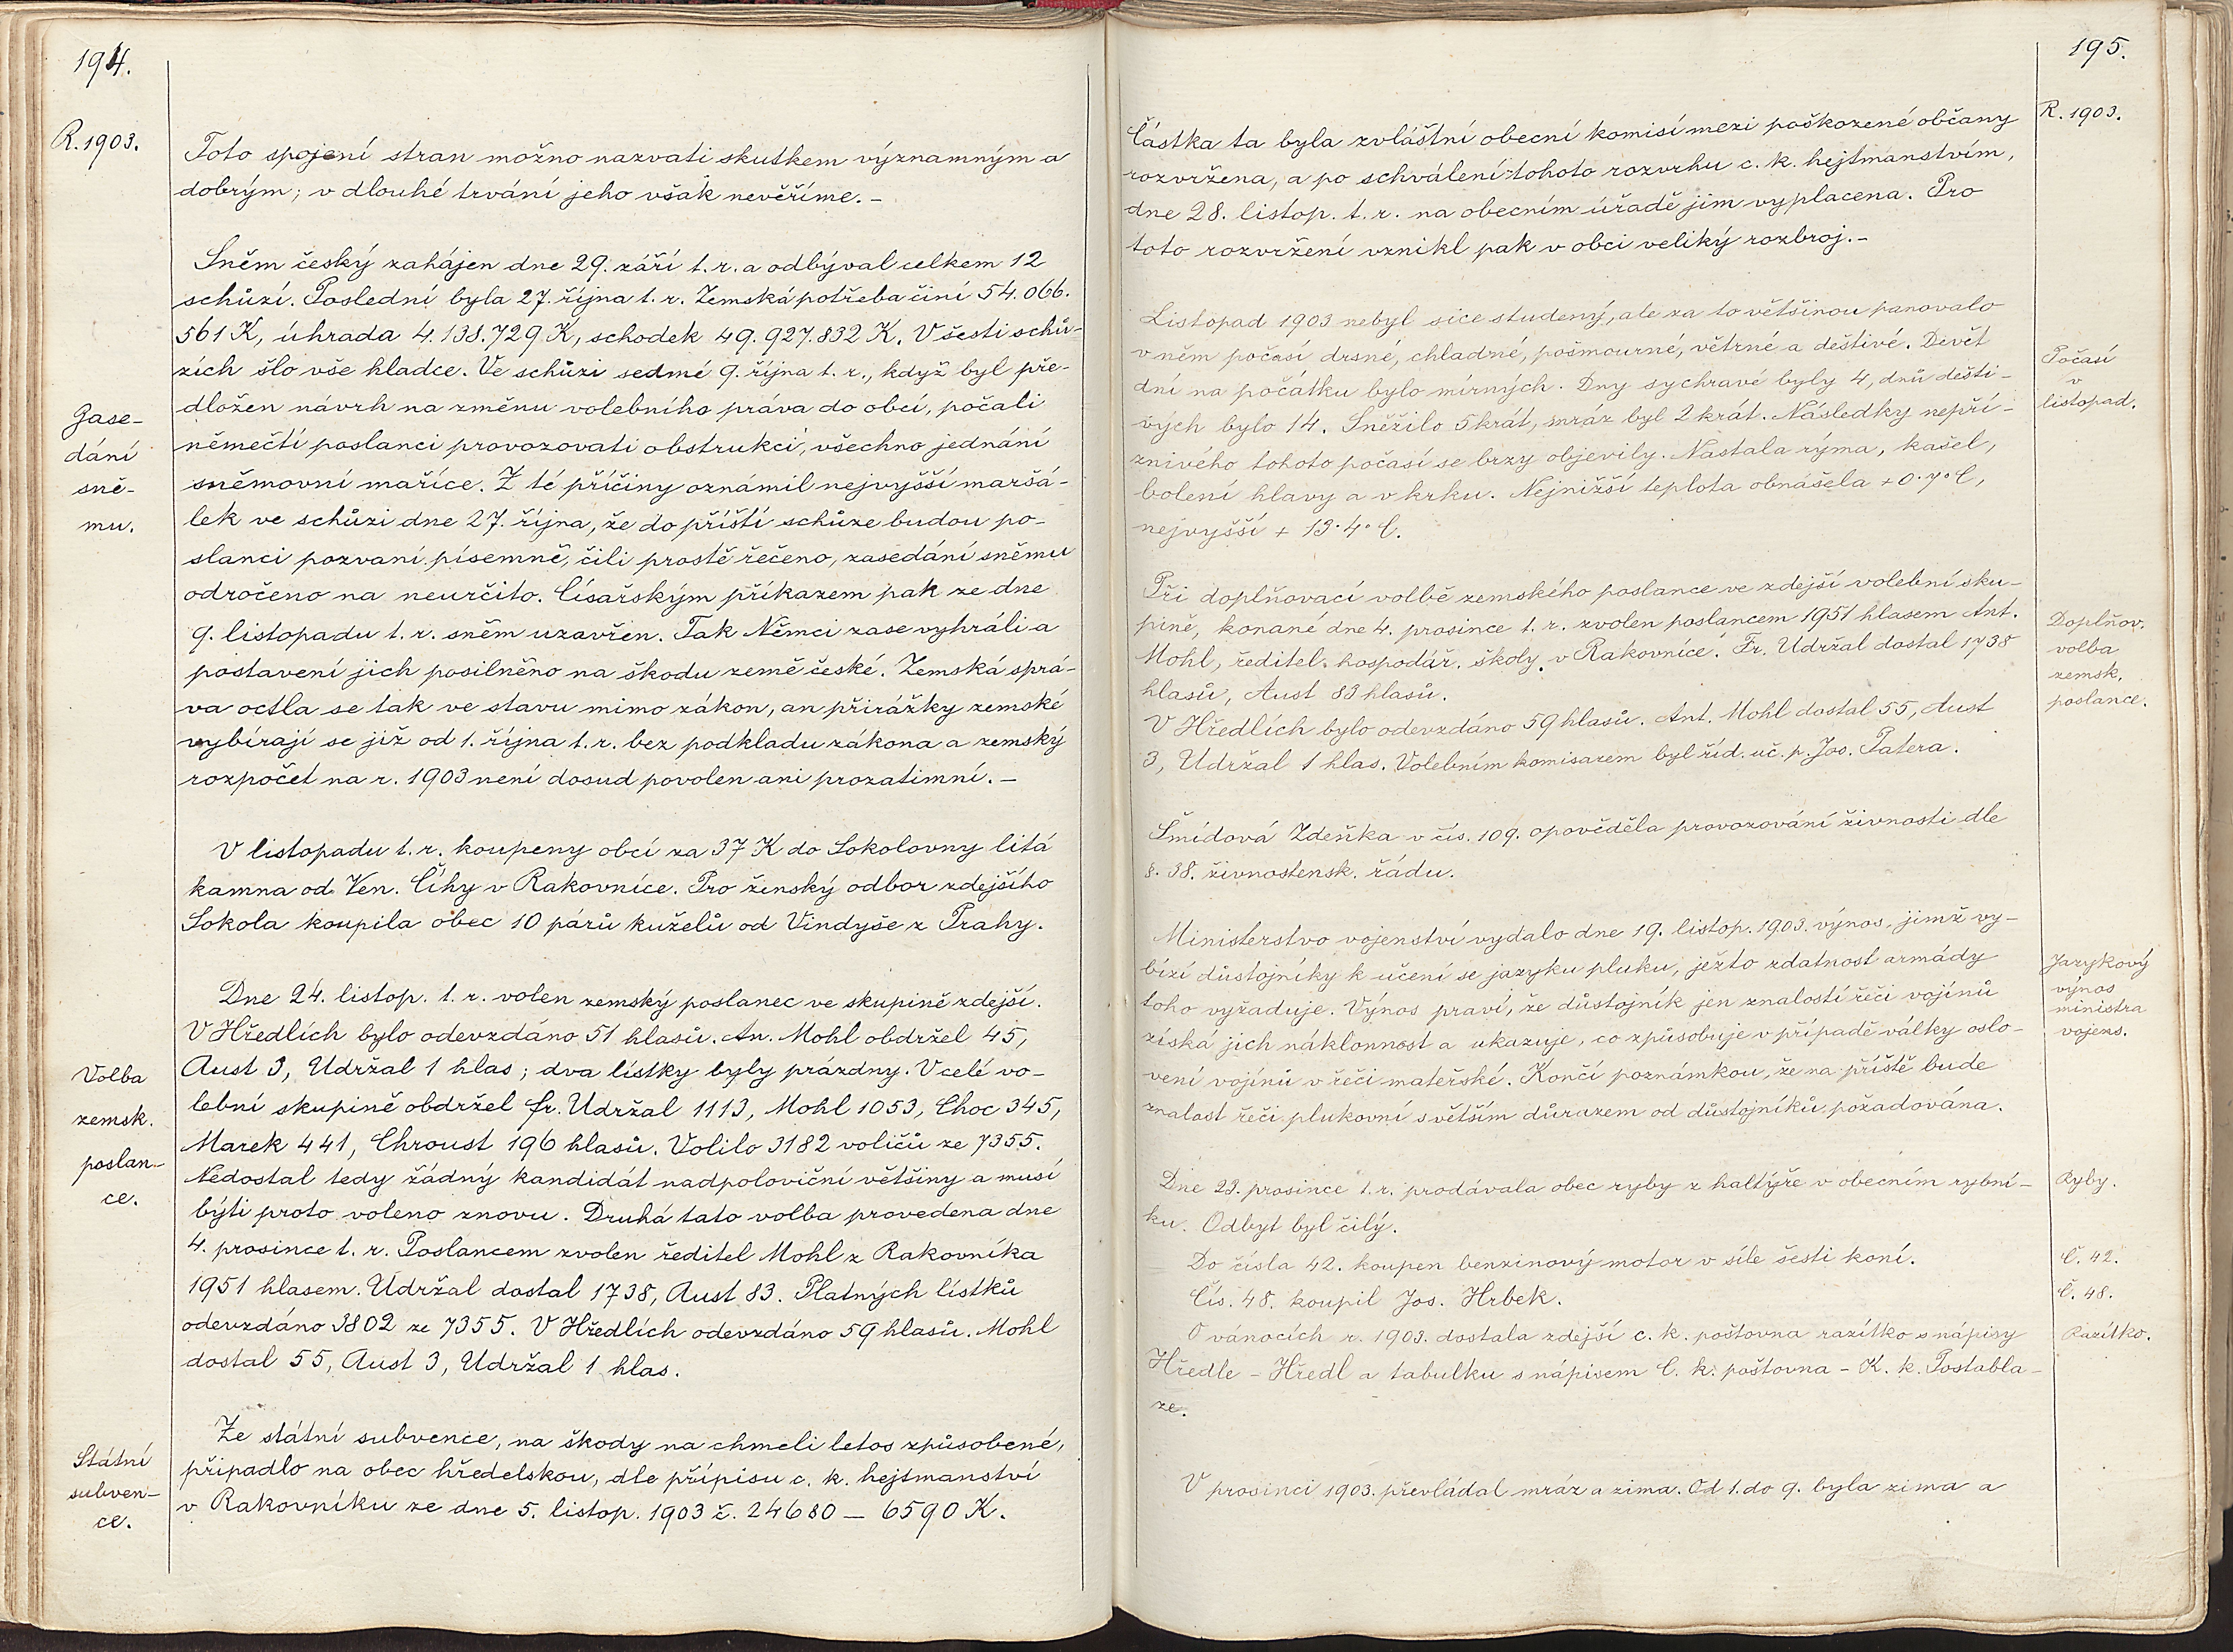 194.
R. 1903.
Toto spojení stran možno nazvati skutkem významným a
dobrým; v dlouhé trvání jeho však nevěříme. -
Sněm český zahájen dne 29. září t. r. a odbýval celkem 12
schůzí. Poslední byla 27. října t. r. Zemská potřeba činí 54.066.
561 K, úhrada 4.138.729 K, schodek 49.927.832 K. V šesti schů-
zích šlo vše hladce. Ve schůzi sedmé 9. října t. r., když byl pře-
dložen návrh na změnu volebního práva do obcí, počali
němečtí poslanci provozovati obstrukci, všechno jednání
sněmovní maříce. Z té příčiny oznámil nejvyšší maršá-
lek ve schůzi dne 27. října, že do příští schůze budou po-
slanci pozvaní písemně, čili prostě řečeno, zasedání sněmu
odročeno na neurčito. Císařským příkazem pak ze dne
9. listopadu t. r. sněm uzavřen. Tak Němci zase vyhráli a
postavení jich posilněno na škodu země české. Zemská sprá-
va octla se tak ve stavu mimo zákon, an přirážky zemské
vybírají se již od 1. října t. r. bez podkladu zákona a zemský
rozpočet na r. 1903 není dosud povolen ani prozatimní. -
Zase-
dání
sně-
mu.
V listopadu t. r. koupeny obcí za 37 K do Sokolovny litá
kamna od Ven. Číhy v Rakovníce. Pro ženský odbor zdejšího
Sokola koupila obec 10 párů kuželů od Vindyše z Prahy.
Dne 24. listop. t. r. volen zemský poslanec ve skupině zdejší.
V Hředlích bylo odevzdáno 51 hlasů. An. Mohl obdržel 45,
Aust 3, Udržal 1 hlas; dva lístky byly prázdny. V celé vo-
lební skupině obdržel fr. Udržal 1113, Mohl 1053, Choc 345,
Marek 441, Chroust 196 hlasů. Volilo 3182 voličů ze 7355.
Nedostal tedy žádný kandidát nadpoloviční většiny a musí
býti proto voleno znovu. Druhá tato volba provedena dne
4. prosince t. r. Poslancem zvolen ředitel Mohl z Rakovníka
1951 hlasem. Udržal dostal 1738, Aust 83. Platných lístků
odevzdáno 3802 ze 7355. V Hředlích odevzdáno 59 hlasů. Mohl
dostal 55, Aust 3, Udržal 1 hlas.
Volba
zemsk.
poslan-
ce.
Ze státní subvence, na škody na chmeli letos způsobené,
připadlo na obec hředelskou, dle přípisu c. k. hejtmanství
v Rakovníku ze dne 5. listop. 1903 č. 24680 - 6590 K.
Státní
subven-
ce.
195.
R. 1903.
Částka ta byla zvláštní obecní komisí mezi poškozené občany
rozvržena, a po schválení tohoto rozvrhu c. k. hejtmanstvím,
dne 28. listop. t. r. na obecním úřadě jim vyplacena. Pro
toto rozvržení vznikl pak v obci veliký rozbroj. -
Listopad 1903 nebyl sice studený, ale za to většinou panovalo
v něm počasí drsné, chladné, pošmourné, větrné a deštivé. Devět
dní na počátku bylo mírných. Dny sychravé byly 4, dnů dešti-
vých bylo 14. Sněžilo 5krát, mráz byl 2krát. Následky nepří-
znivého tohoto počasí se brzy objevily. Nastala rýma, kašel,
bolení hlavy a v krku. Nejnižší teplota obnášela + 0·7° C,
nejvyšší + 13·4° C.
Počasí
v
listopad.
Při doplňovací volbě zemského poslance ve zdejší volební sku-
pině, konané dne 4. prosince t. r. zvolen poslancem 1951 hlasem Ant.
Mohl, ředitel hospodář. školy v Rakovníce. Fr. Udržal dostal 1738
hlasů, Aust 83 hlasů.
V Hředlích bylo odevzdáno 59 hlasů. Ant. Mohl dostal 55, Aust
3, Udržal 1 hlas. Volebním komisarem byl říd. uč. p. Jos. Patera.
Doplňov.
volba
zemsk.
poslance.
Šmídová Zdeňka v čís. 109. opověděla provozování živnosti dle
§. 38. živnostensk. řádu.
Ministerstvo vojenství vydalo dne 19. listop. 1903. výnos, jimž vy-
bízí důstojníky k učení se jazyku pluku, ježto zdatnost armády
toho vyžaduje. Výnos praví, že důstojník jen znalostí řeči vojínů
získá jich náklonnost a ukazuje, co způsobuje v případě války oslo-
vení vojínů v řeči mateřské. Končí poznámkou, že na příště bude
znalost řeči plukovní s větším důrazem od důstojníků požadována.
Jazykový
výnos
ministra
vojens.
Dne 23. prosince t. r. prodávala obec ryby z haltýře v obecním rybní-
ku. Odbyt byl čilý.
Ryby.
Do čísla 42. koupen benzinový motor v síle šesti koní.
Č. 42.
Čís. 48. koupil Jos. Hrbek.
Č. 48.
O vánocích r. 1903. dostala zdejší c. k. poštovna razítko s nápisy
Hředle - Hředl a tabulku s nápisem C. k. poštovna - K. k. Postabla-
ze.
Razítko.
V prosinci 1903. převládal mráz a zima. Od 1. do 9. byla zima a